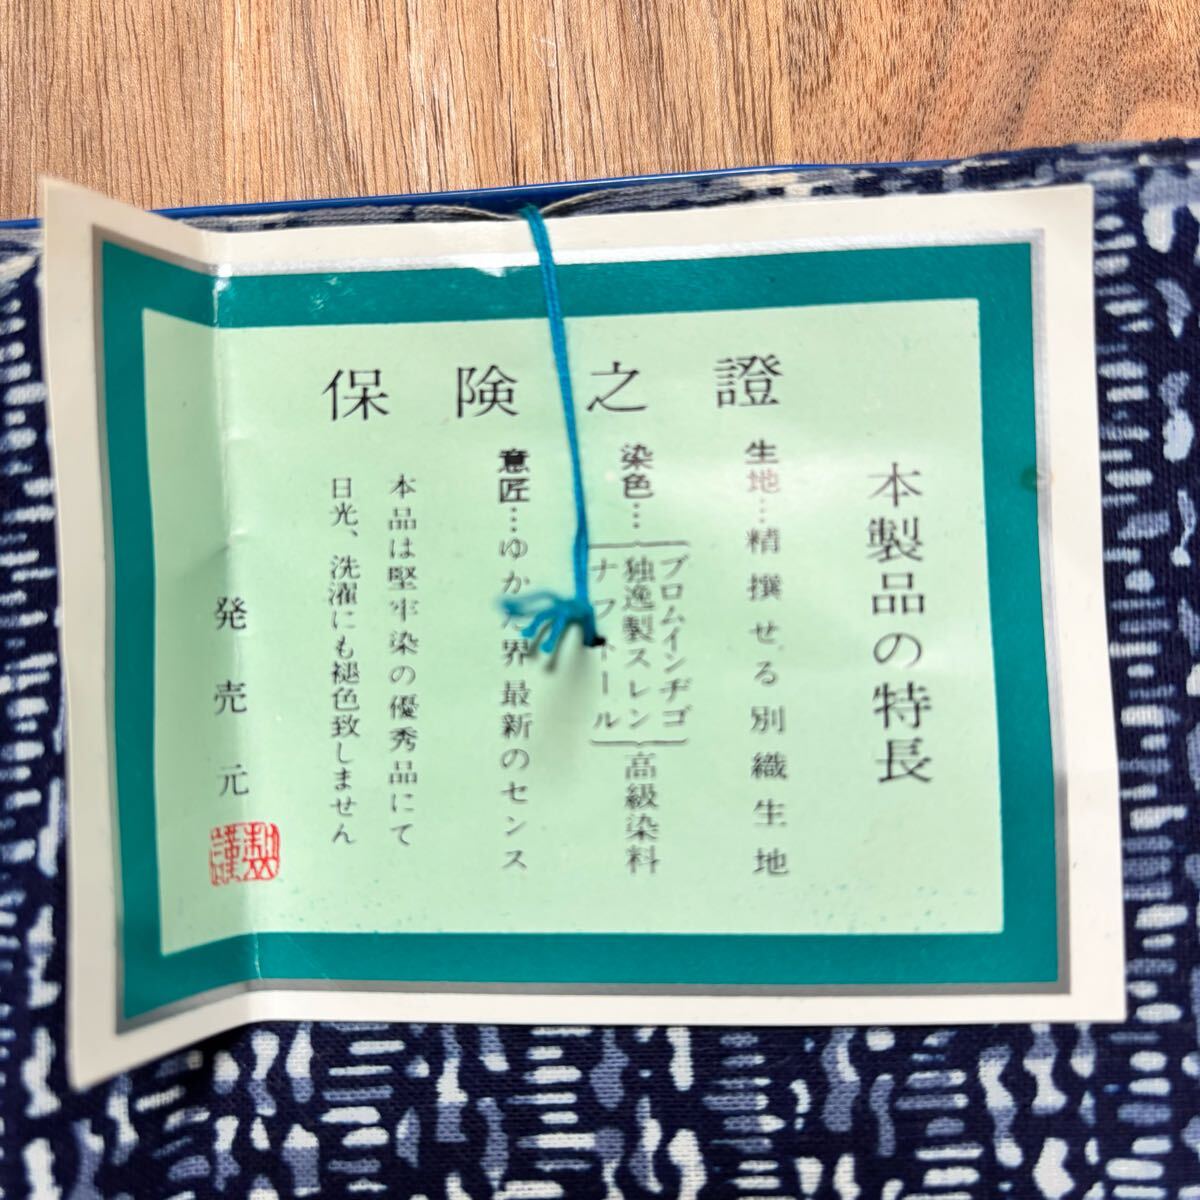 保険之證
本製品の特長
生地…精撰せる別織生地
染色…
ブロムインヂゴ
独逸製スレン
ナフトール
高級染料
意匠…ゆかた界最新のセンス
本品は堅牢染の優秀品にて
日光、洗濯にも褪色致しません
発売元
謹製